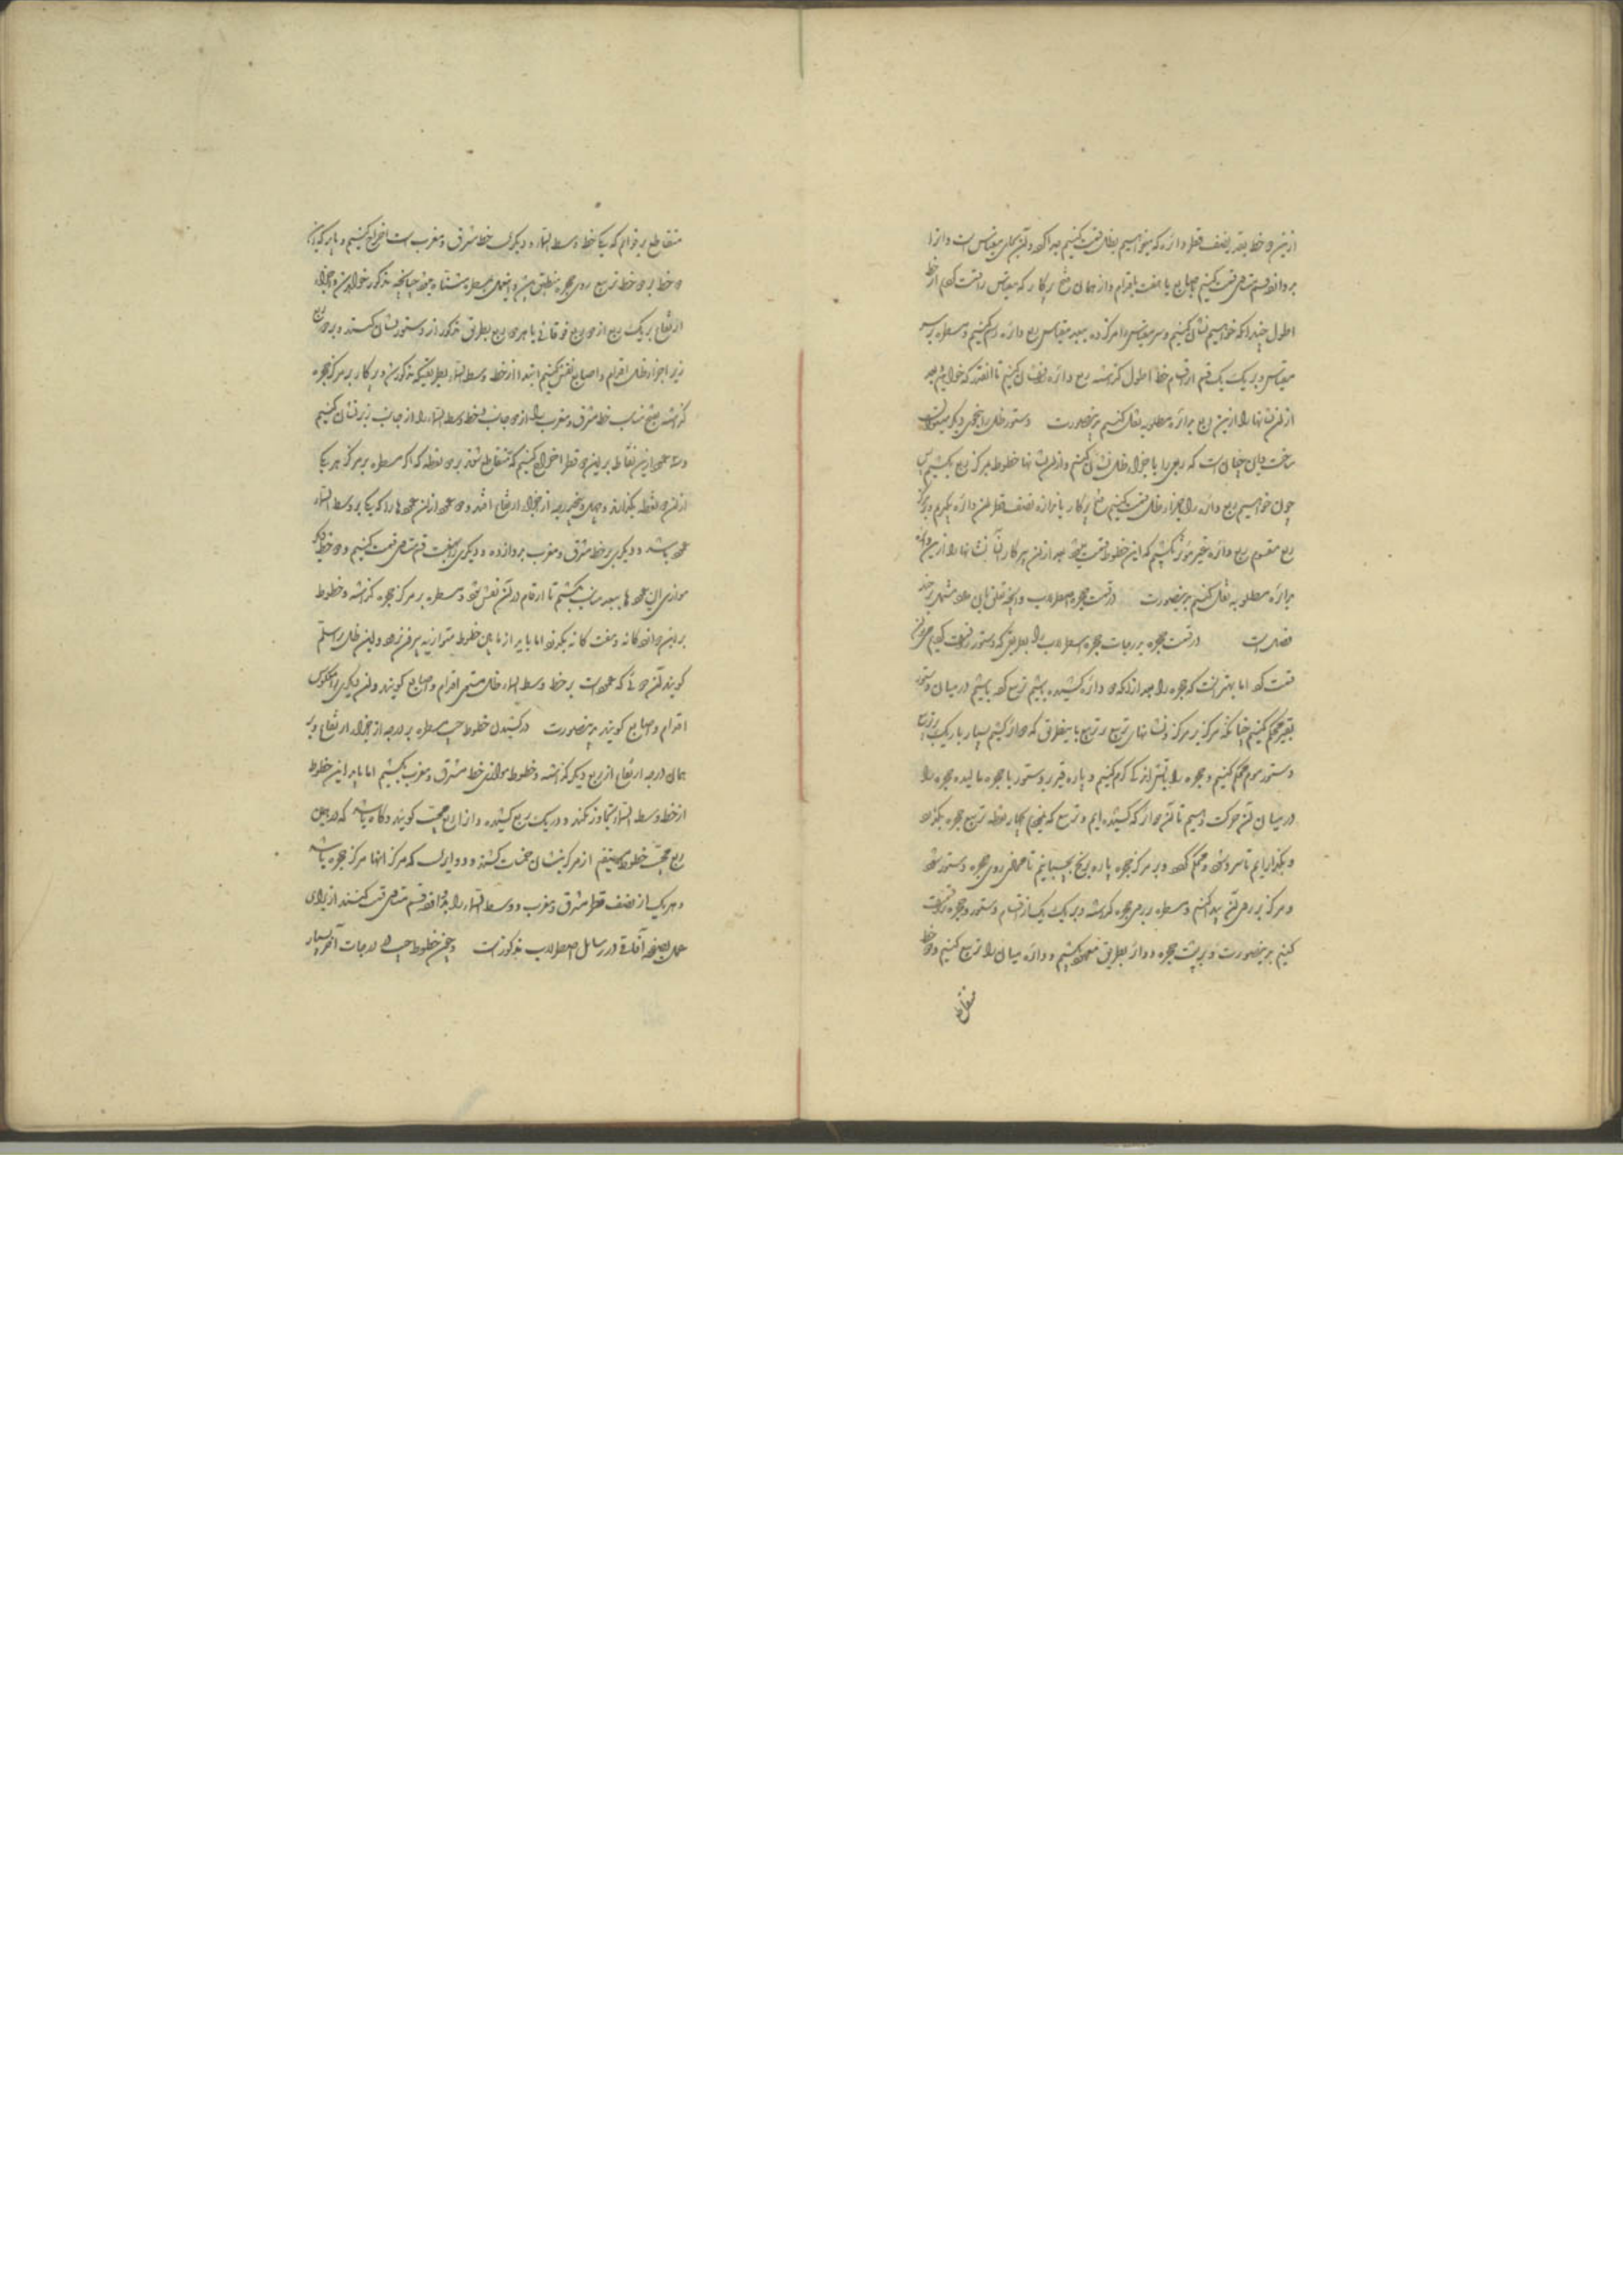 ازین دو خط بقدر نصف قطر دائره که میخواهیم بظل قسمت کنیم جدا کرده و آن بجای مقیاس است و آنرا
بدوازده قسم متساوی قسمت کنیم باصابع یا هفت باقدام و از همان فتح پرکار که مقیاس را قسمت کردیم از خط
اطول چندانکه خواهیم نشان کنیم و سر مقیاس را مرکز ربع دائره رسم کنیم و مسطره بر سر
مقیاس و بر یک یک قسم از اقسام خط اطول گذاشته ربع دائره را نشان کنیم تا آنقدر که خواهیم بعد
از آن نشانها را ازین ربع بدائره مطلوبه نقل کنیم برینصورت دستور ظل را بنحوی دیگر میتوان
ساخت و آن چنان است که ربعی را باجزاء ظل نشان کنیم و از آن نشانها خطوط بمرکز ربع بکشیم پس
چون خواهیم ربع دائره را باجزاء ظل قسمت کنیم فتح پرکار باندازه نصف قطر آن دائره بگیریم و بر مرکز
ربع مقسوم ربع دائره غیر مؤثر بکشیم که این خطوط قسمت یافته بعد از آن بپرکار نشانها را ازین دائره
بدائره مطلوبه نقل کنیم برینصورت در قسمت حجره اصطرلاب و آنچه تعلق بآن دارد مشتمل بر چند
فصل است در قسمت حجره بدرجات حجره اصطرلاب را بطریق که دستور را قسمت کردیم میتوان
قسمت کرد اما بهتر آنست که حجره را بعد از آنکه دو دائره کشیده باشیم تربیع کرده باشیم در میان دستور
بقیر محکم کنیم چنانکه مرکز بر مرکز و نشانهای تربیع بر تربیع باینطریق که دو دائره کشیم بسیار باریک
دستور موم محکم کنیم و حجره را بآتش اندکی گرم کنیم و پاره قیر بر دستور یا حجره مالیده حجره را
در میان آن حرکت دهیم تا آن دائره که کشیده ایم و تربیع که بچهار نقطه تربیع حجره بگذرد
و بگذاریم تا سرد شود و محکم گردد و بر مرکز حجره پاره برنج بچسبانیم تا مساوی روی حجره و دستور شود
و مرکز بر روی آن پیدا کنیم و مسطره بر روی حجره گذاشته و بر یک یک از اقسام دستور و حجره را قسمت
کنیم برینصورت و بر پشت حجره دوائر بطریق معهود بکشیم و دائره میان را تربیع کنیم و دو خط
متقاطع
متقاطع بر قوائم که یکی خط وسط السماء و دیگری خط مشرق و مغرب است اخراج کنیم و باید که این
دو خط بر دو خط تربیع روی حجره منطبق و اجزاء
ارتفاع بر یک ربع از دو ربع فوقانی یا هر دو ربع بطریق مذکور از دستور نشان کنند و بر دو ربع
زیر اجزاء ظل اقدام و اصابع نقش کنیم ابتدا از خط وسط السماء بطریقیکه مذکور شد و پرکار بر مرکز حجره
گذاشته بفتح مناسب خط مشرق و مغرب را از دو جانب و خط وسط السماء را از جانب زیر نشان کنیم
و سه عمود ازین نقاط برین دو قطر اخراج کنیم که متقاطع شوند بر دو نقطه که اگر مسطره بر مرکز هر یک
از آن دو نقطه بگذارند و پنج درجه از اجزاء ارتفاع افتد و دو عمود از آن عمودها را که یکی بر وسط السماء
عمود باشد و دیگری بر خط مشرق و مغرب بدوازده و دیگری را بهفت قسم متساوی قسمت کنیم و دو خط دیگر
موازی این عمودها ببعد مناسب بکشیم تا ارقام در آن نقش شود و مسطره بر مرکز حجره گذاشته و خطوط
برین دوازده گانه و هفت گانه بگذرد اما باید از مابین خطوط متوازیه بیرون نرود و این ظل را سلم
گویند آن دو ئی که عمود است بر خط وسط السماء ظل مستوی اقدام و اصابع گویند و آن دیگری را معکوس
اقدام و اصابع گویند برینصورت در کشیدن خطوط جیب مسطره بر درجه از اجزاء ارتفاع و بر
همان درجه ارتفاع از ربع دیگر گذاشته و خطوط موازی خط مشرق و مغرب بکشیم اما باید این خطوط
از خط وسط السماء تجاوز نکند و در یک ربع کشیده و از ا ربع مجیب گویند و گاه باشد که در همین
ربع مجیب خطوط مستقیم از مرکز بنشان کشند و دوایری که مرکز آنها مرکز حجره باشد
و هر یک از نصف قطر مشرق و مغرب و وسط السماء را بدوازده قسم متساوی قسمت کنند از برای
عمل بصفیحه آفاقی در رسایل اصطرلاب مذکور است و چون خطوط جیب درجات آخر بسیار